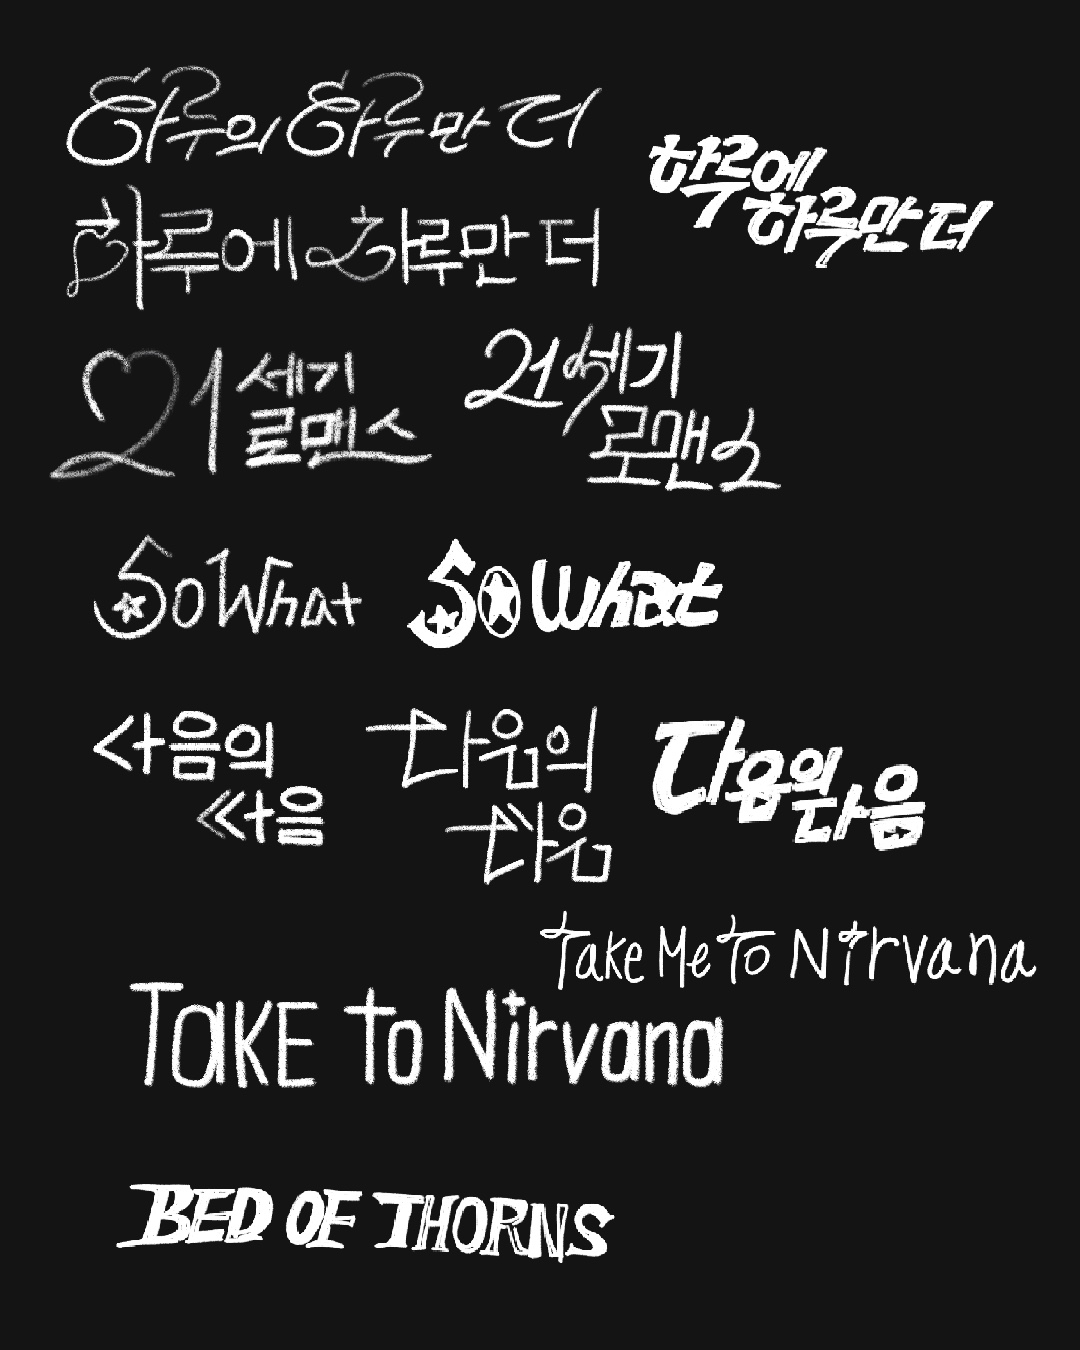 하루의 하루만 더
하루에
하루만 더
하루에 하루만 더
21세기
로맨스
21세기
로맨스
So What
So What
다음의
다음
다음의
다음
다음의
다음
Take Me To Nirvana
TaKE to Nirvana
BED OF THORNS